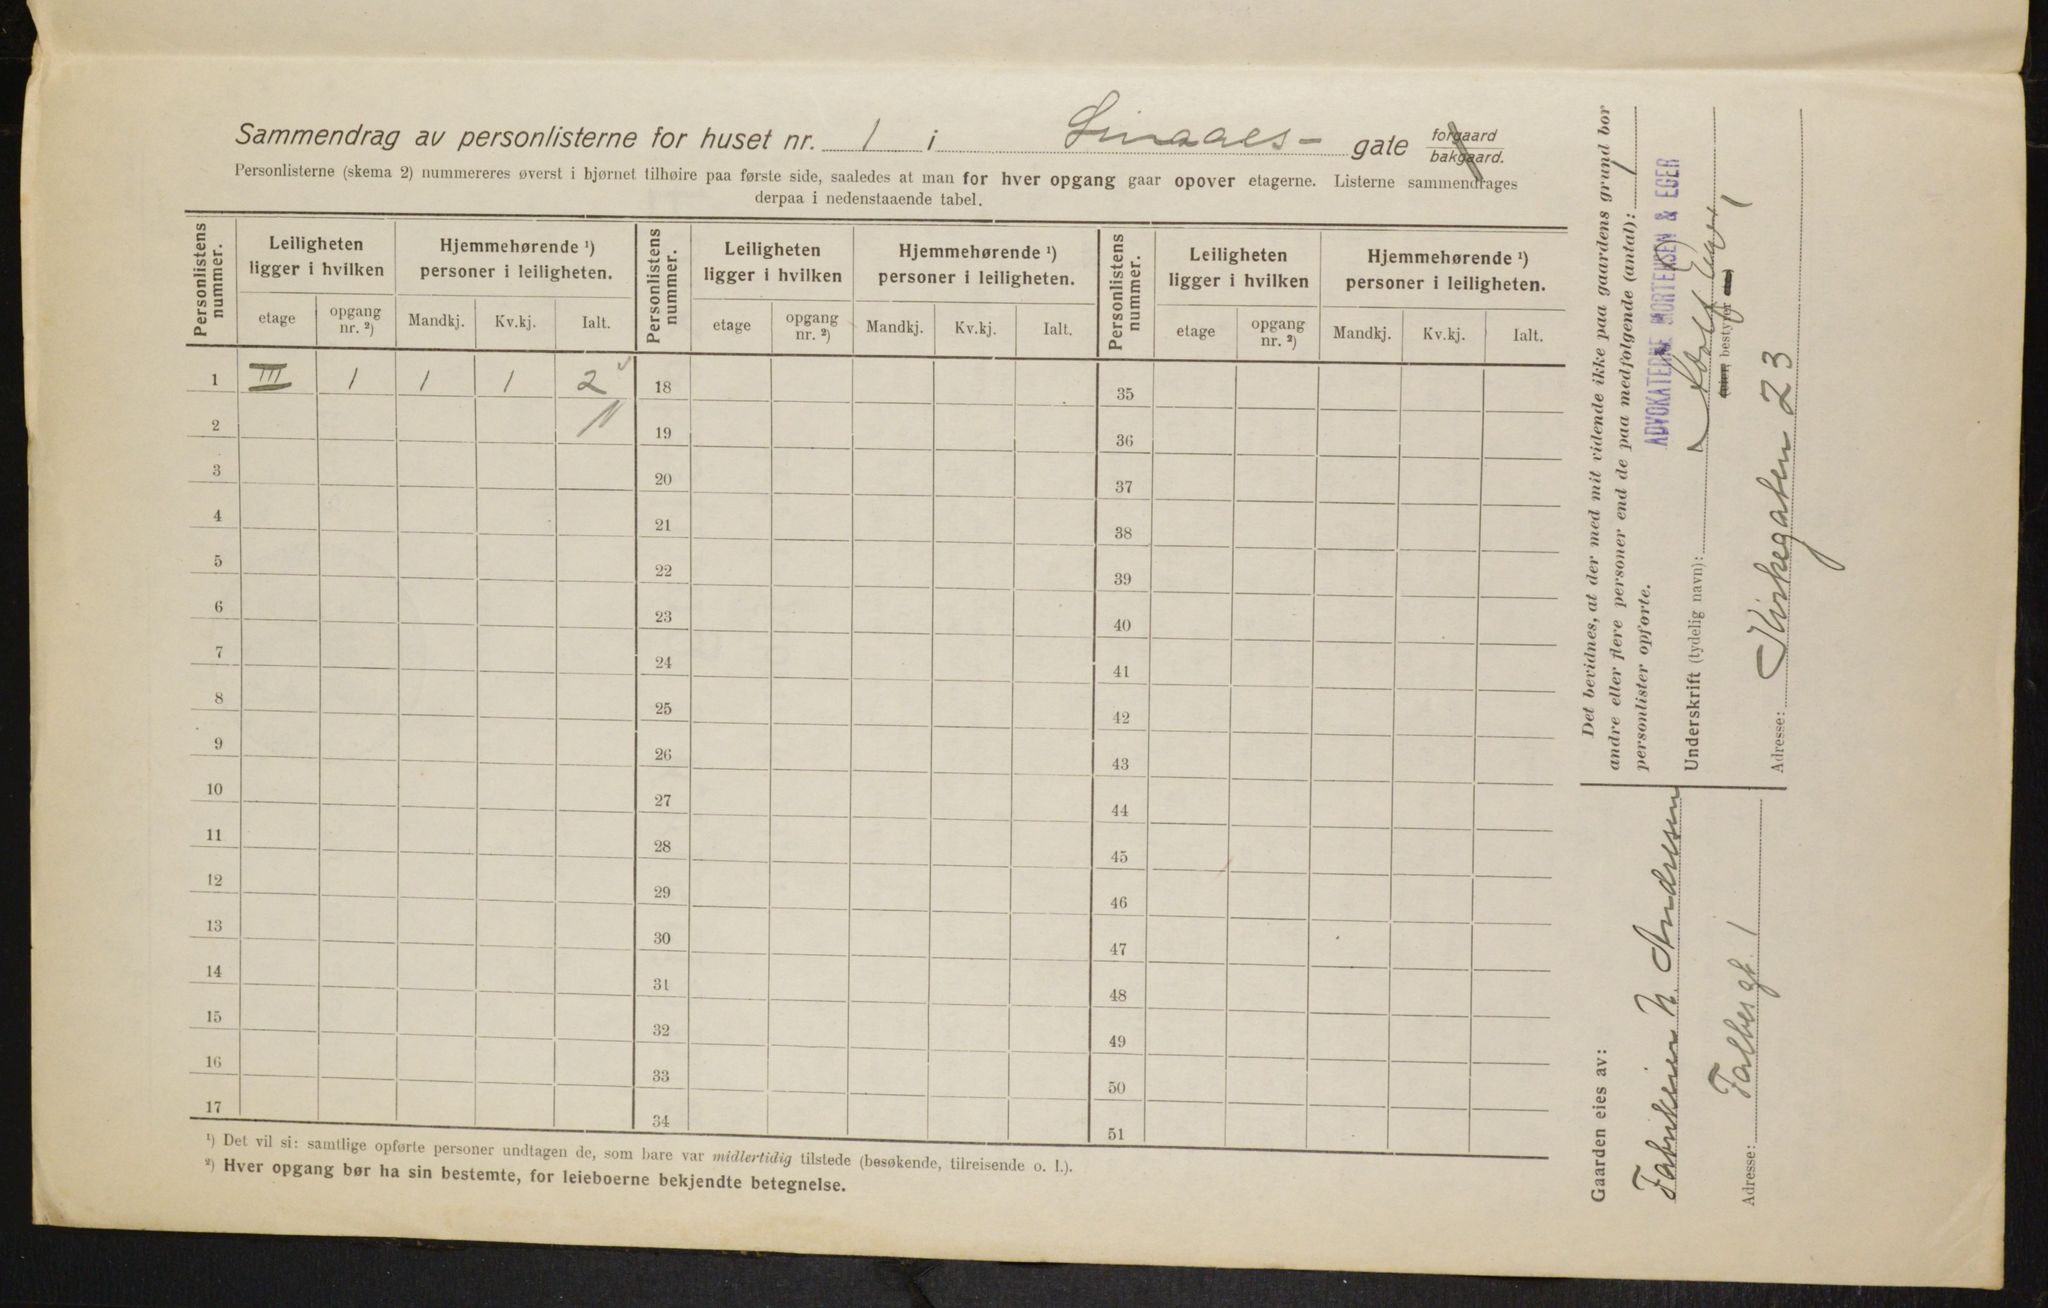 Sammendrag av personlisterne for huset nr. 1 i Smaaes- gate forgaard bakgaard.
Personlisterne (skema 2) nummereres øverst i hjørnet tilhøire paa første side, saaledes at man for hver opgang gaar opover etagerne. Listerne sammendrages
derpaa i nedenstaaende tabel.
Personlistens nummer. Leiligheten ligger i hvilken Hjemmehørende ¹) personer i leiligheten. Personlistens nummer. Leiligheten ligger i hvilken Hjemmehørende ¹) personer i leiligheten. Personlistens nummer. Leiligheten ligger i hvilken Hjemmehørende ¹) personer i leiligheten.
etage opgang nr. ²) Mandkj. Kv.kj. Ialt. etage opgang nr. ²) Mandkj. Kv.kj. Ialt. etage opgang nr. ²) Mandkj. Kv.kj. Ialt.
1 III 1 1 1 2 18 35
2 19 36
3 20 37
4 21 38
5 22 39
6 23 40
7 24 41
8 25 42
9 26 43
10 27 44
11 28 45
12 29 46
13 30 47
14 31 48
15 32 49
16 33 50
17 34 51
¹) Det vil si: samtlige opførte personer undtagen de, som bare var midlertidig tilstede (besøkende, tilreisende o. l.).
²) Hver opgang bør ha sin bestemte, for leieboerne bekjendte betegnelse.
Det bevidnes, at der med mit vidende ikke paa gaardens grund bor
andre eller flere personer end de paa medfølgende (antal): 1
personlister opførte.
ADVOKATERNE MORTENSEN & EGER
Underskrift (tydelig navn):
(eier, bestyrer
Adresse: Kirkegaten 23
Gaarden eies av:
Fabrikeier N. Andresen
Adresse: Falbesgt. 1